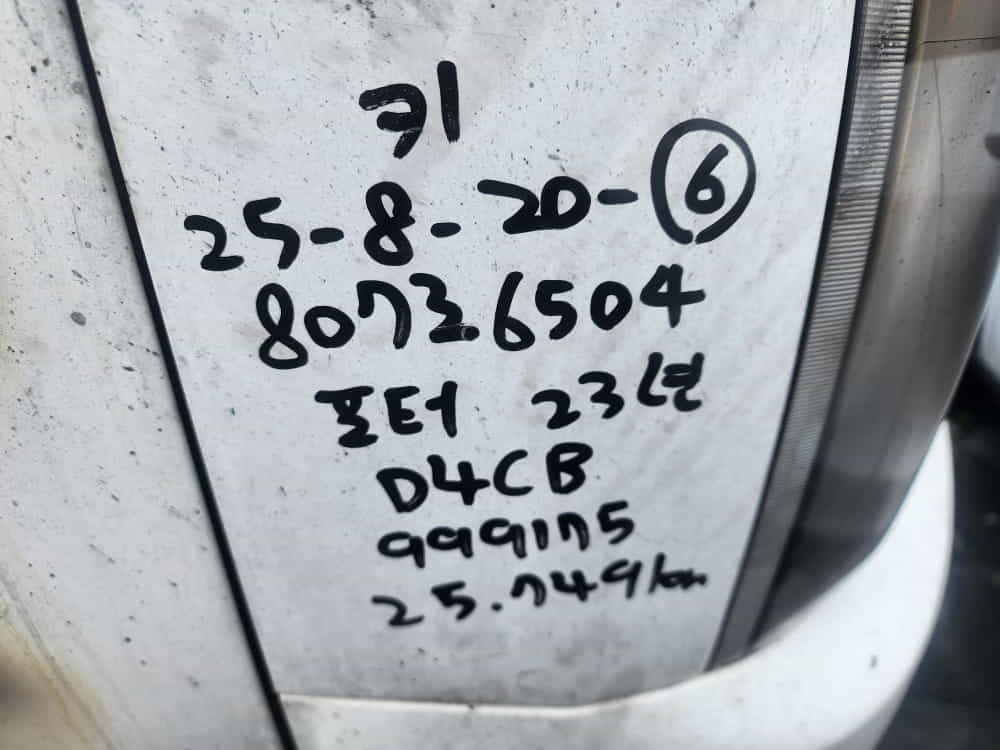 키
25-8-20-⑥
80736504
포터 23년
D4CB
999175
25.749km